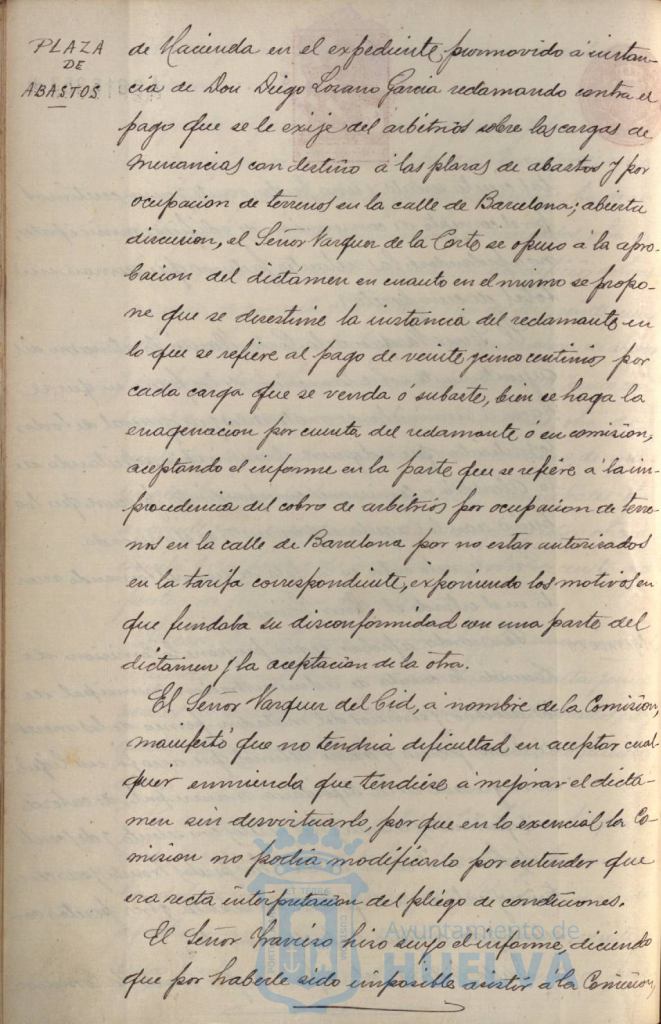 PLAZA
DE
ABASTOS.
de Hacienda en el expediente promovido á instan-
cia de Don Diego Lozano Garcia reclamando contra el
pago que se le exije del arbitrios sobre las cargas de
mercancias con destino á las plazas de abastos y por
ocupacion de terrenos en la calle de Barcelona; abierta
discusion, el Señor Vazquez de la Corte se opuso á la apro-
bacion del dictámen en cuanto en el mismo se propo-
ne que se desestime la instancia del reclamante en
lo que se refiere al pago de veinte y cinco centimos por
cada carga que se venda ó subaste, bien se haga la
enagenacion por cuenta del reclamante ó en comision,
aceptando el informe en la parte que se refiere á la im-
procedencia del cobro de arbitrios por ocupacion de terre-
nos en la calle de Barcelona por no estar autorizados
en la tarifa correspondiente, exponiendo los motivos en
que fundaba su disconformidad con una parte del
dictamen y la aceptacion de la otra.
El Señor Vazquez del Cid, á nombre de la Comision,
manifestó que no tendria dificultad en aceptar cual-
quier enmienda que tendiese á mejorar el dictá-
men sin desvirtuarlo, porque en lo exencial la Co-
mision no podia modificarlo por entender que
era recta interpretacion del pliego de condiciones.
El Señor Travieso hizo suyo el informe, diciendo
que por haberle sido imposible asistir á la Comision,
Ayuntamiento de
HUELVA